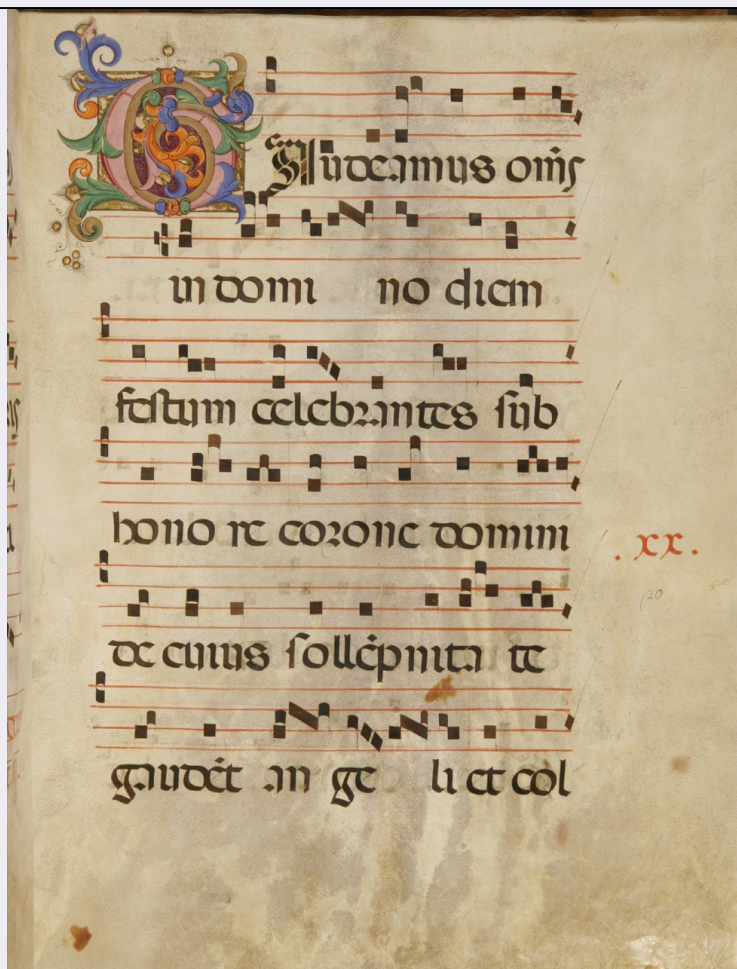 Gaudeamus om̃s
in domi no diem
festum celebrantes sub
hono re corone domini
de cuius sollẽpnita te
.xx.
20
gaudẽt an ge li et col